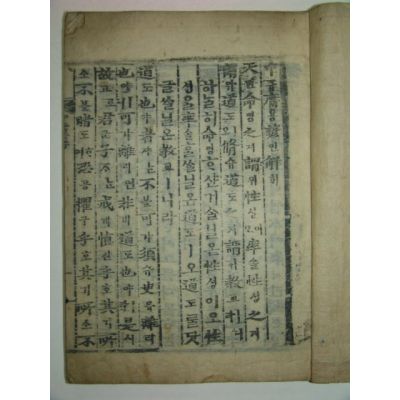 中듕庸용諺언解ᄒᆡ
天텬命명之지謂위性셩이오率솔性셩之지
謂위道도ㅣ오脩슈道도之지謂위敎교ㅣ니라
하ᄂᆞᆯ이命명ᄒᆞ샨거슬닐온性셩이오性
셩을率솔홈을닐온道도ㅣ오道도ᄅᆞᆯ닷
글쓸닐온敎교ㅣ니라
道도也야者쟈ᄂᆞᆫ不블可가須슈臾유離리
也야ㅣ니可가離리면非비道도也야ㅣ라是시
故고로君군子ᄌᆞᄂᆞᆫ戒계愼신乎호其기所
소不블睹도ᄒᆞ며恐공懼구乎호其기所소不